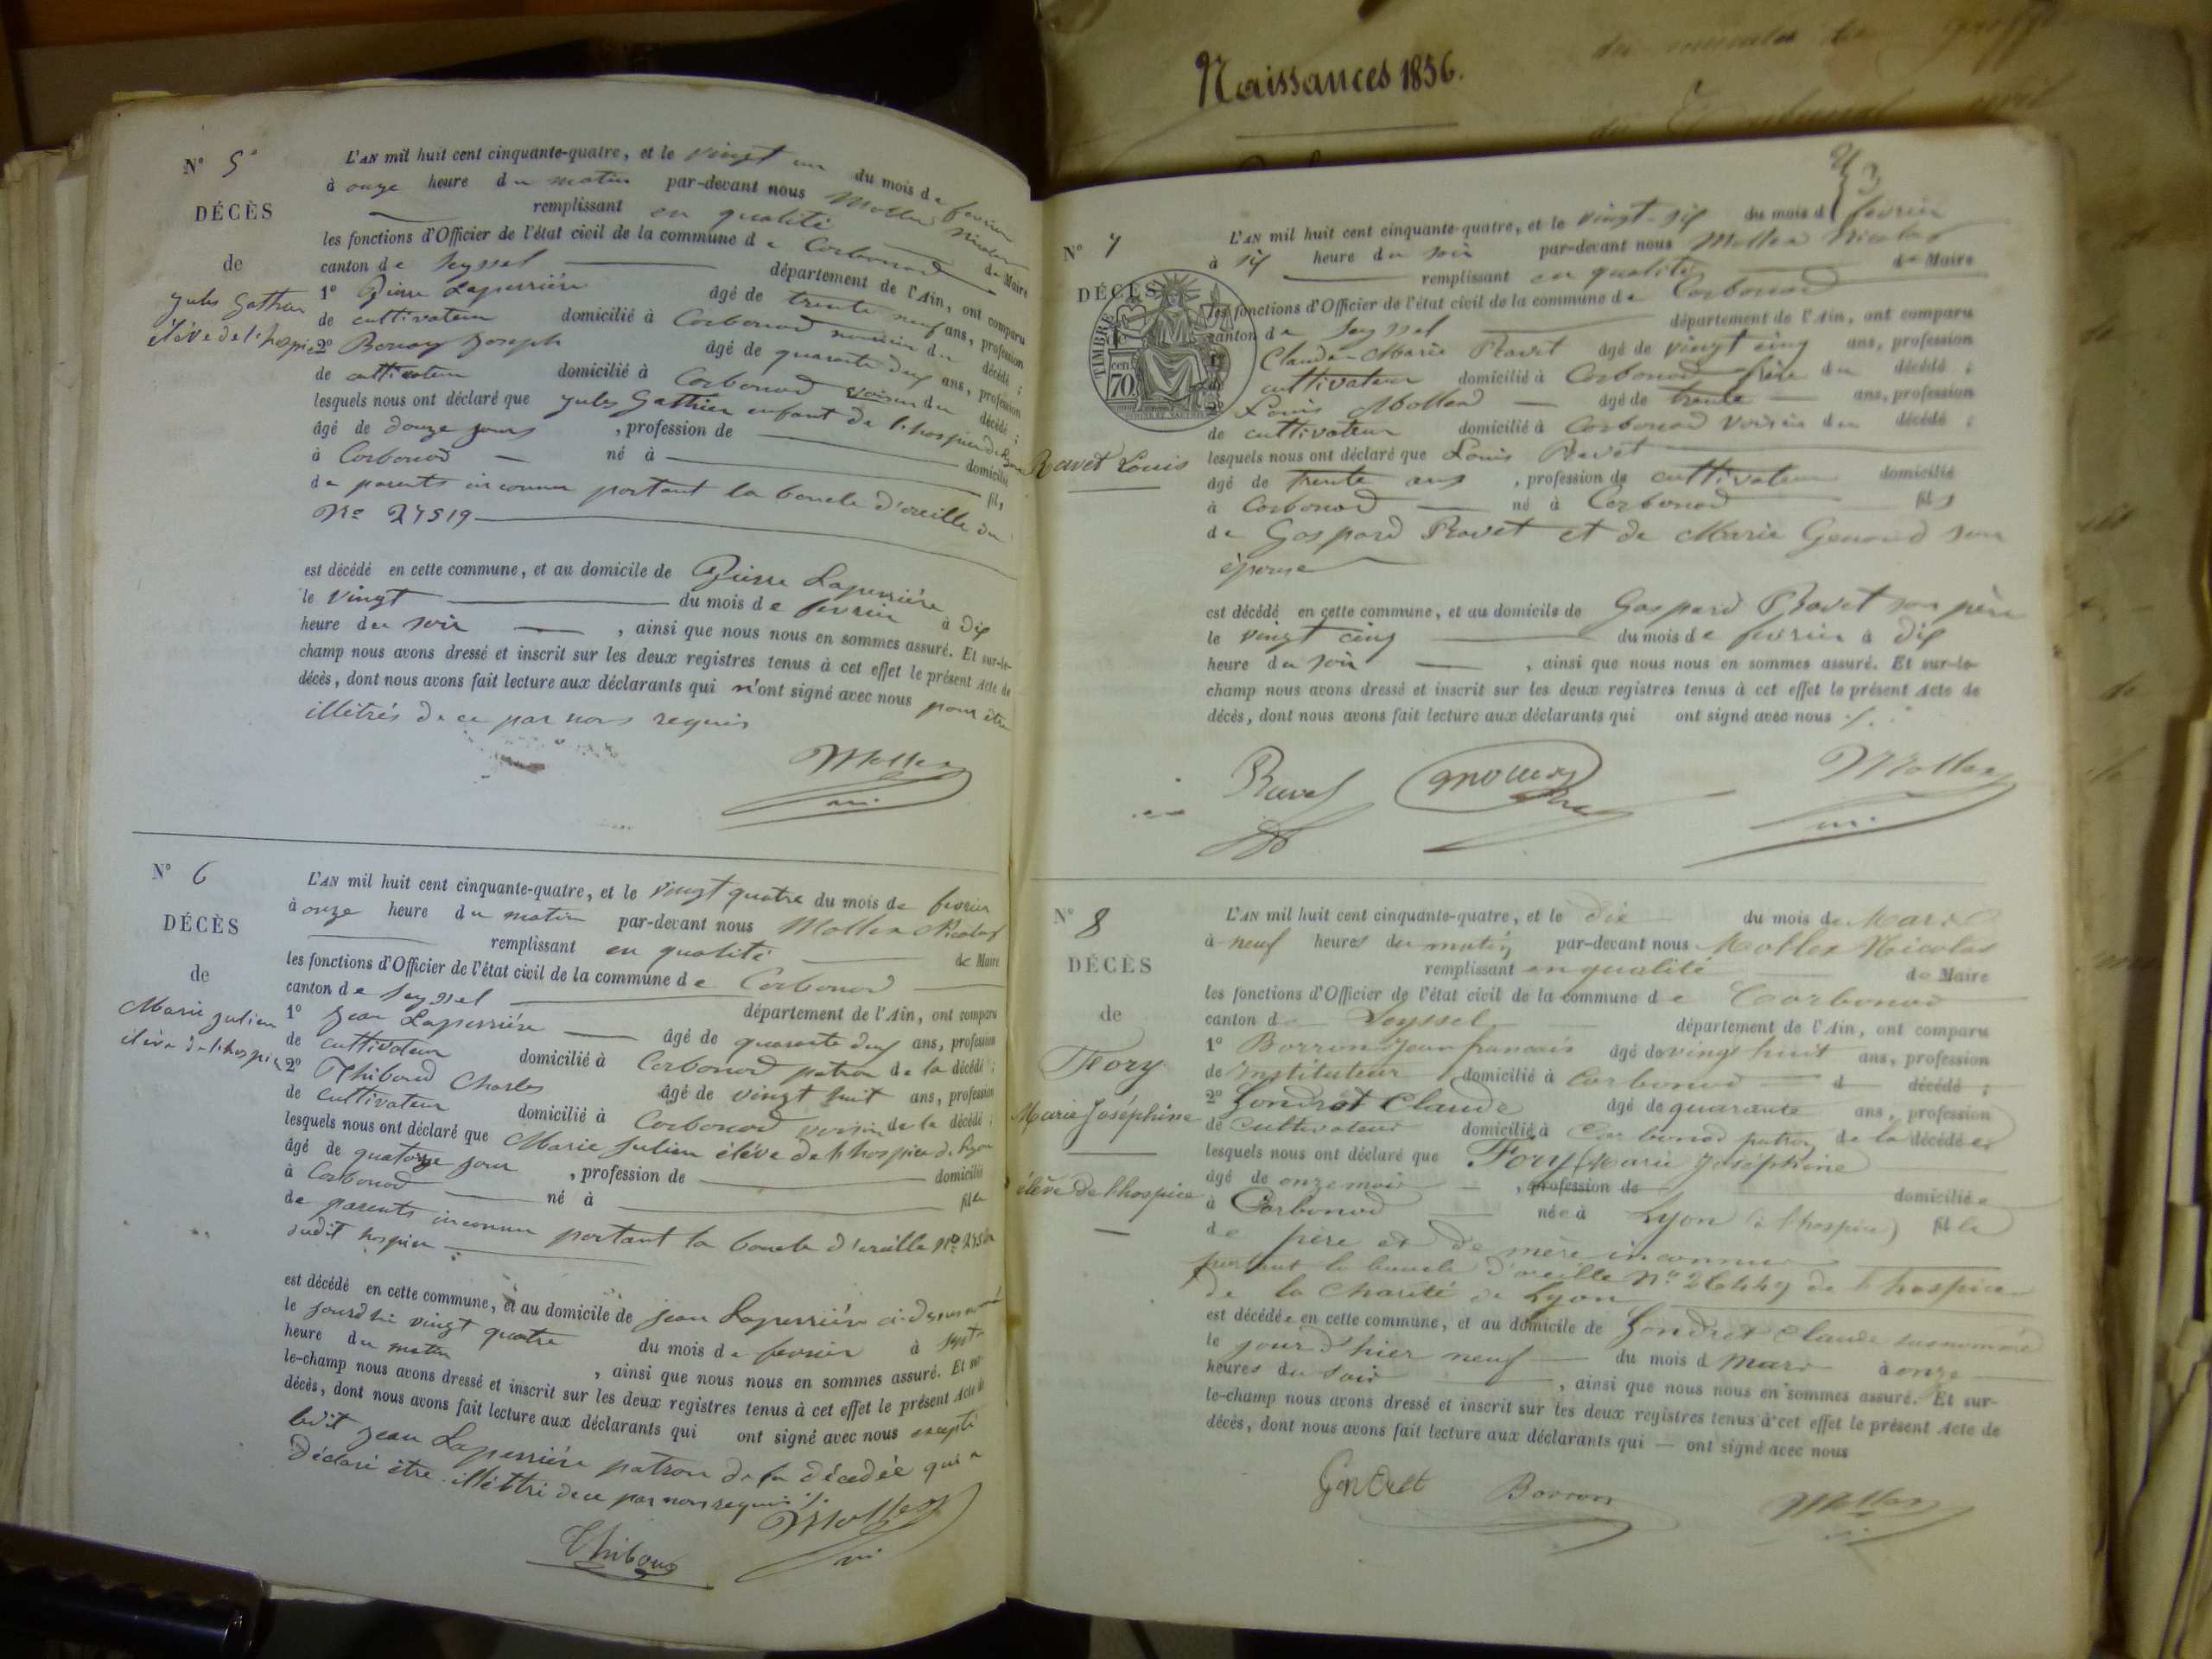 N° 5
DÉCÈS
de
jules Gathier
élève de l'hospice
L'AN mil huit cent cinquante-quatre, et le vingt un du mois de fevrier
à onze heure du matin par-devant nous Mollex Nicolas
remplissant en qualité de Maire
les fonctions d'Officier de l'état civil de la commune de Corbonod
canton de Seyssel département de l'Ain, ont comparu
1° Pierre Laperrière âgé de trente neuf ans, profession
de cultivateur domicilié à Corbonod nourricier du décédé ;
2° Bonoz Joseph âgé de quarante deux ans, profession
de cultivateur domicilié à Corbonod voisin du décédé ;
lesquels nous ont déclaré que jules Gathier enfant de l'hospice de Lyon
âgé de douze jours , profession de domicilié
à Corbonod né à fils
de parents inconnus portant la boucle d'oreille du
N° 27519
est décédé en cette commune, et au domicile de Pierre Laperrière
le vingt du mois de fevrier à dix
heure du soir , ainsi que nous nous en sommes assuré. Et sur-le-
champ nous avons dressé et inscrit sur les deux registres tenus à cet effet le présent Acte de
décès, dont nous avons fait lecture aux déclarants qui n'ont signé avec nous pour être
illétrés de ce par nous requis
Mollex
N° 6
DÉCÈS
de
Marie julien
élève de l'hospice
L'AN mil huit cent cinquante-quatre, et le vingt quatre du mois de fevrier
à onze heure du matin par-devant nous Mollex Nicolas
remplissant en qualité de Maire
les fonctions d'Officier de l'état civil de la commune de Corbonod
canton de Seyssel département de l'Ain, ont comparu
1° Jean Laperrière âgé de quarante deux ans, profession
de cultivateur domicilié à Corbonod patron de la décédé ;
2° Thiboud Charles âgé de vingt huit ans, profession
de cultivateur domicilié à Corbonod voisin de la décédé ;
lesquels nous ont déclaré que Marie Julien élève de l'hospice de Lyon
âgé de quatorze jour , profession de domicilié
à Corbonod né à fille
de parents inconnus portant la boucle d'oreille N°
sudit hospice
est décédé en cette commune, et au domicile de jean Laperrière ci-dessus nommé
le jourd'hui vingt quatre du mois de fevrier à sept
heure du matin , ainsi que nous nous en sommes assuré. Et sur-
le-champ nous avons dressé et inscrit sur les deux registres tenus à cet effet le présent Acte de
décès, dont nous avons fait lecture aux déclarants qui ont signé avec nous excepté
ledit Jean Laperrière patron de la décedée qui a
déclaré être illéttré de ce par nous requis ./.
Mollex
Thiboud
Naissances 1856.
3
N° 7
DÉCÈS
TIMBRE
cen
70
Ravet Louis
L'AN mil huit cent cinquante-quatre, et le vingt-six du mois d fevrier
à six heure du soir par-devant nous Mollex Nicolas
remplissant en qualité de Maire
les fonctions d'Officier de l'état civil de la commune de Corbonod
canton de Seyssel département de l'Ain, ont comparu
Claude-Marie Ravet âgé de vingt cinq ans, profession
cultivateur domicilié à Corbonod frère du décédé ;
Louis Mollex âgé de trente ans, profession
de cultivateur domicilié à Corbonod voisin du décédé ;
lesquels nous ont déclaré que Louis Ravet
âgé de trente ans , profession de cultivateur domicilié
à Corbonod né à Corbonod fils
de Gaspard Ravet et de Marie Genoud son
épouse
est décédé en cette commune, et au domicile de Gaspard Ravet son père
le vingt cinq du mois de fevrier à dix
heure du soir , ainsi que nous nous en sommes assuré. Et sur-le-
champ nous avons dressé et inscrit sur les deux registres tenus à cet effet le présent Acte de
décès, dont nous avons fait lecture aux déclarants qui ont signé avec nous ./.
Ravet Mollex
N° 8
DÉCÈS
de
Fory
Marie Joséphine
élève de l'hospice
L'AN mil huit cent cinquante-quatre, et le dix du mois de Mars
à neuf heures du matin par-devant nous Mollex Nicolas
remplissant en qualité de Maire
les fonctions d'Officier de l'état civil de la commune de Corbonod
canton d Seyssel département de l'Ain, ont comparu
1° Borron jean françois âgé de vingt huit ans, profession
de Instituteur domicilié à Corbonod d décédé ;
2° Gondret Claude âgé de quarante ans, profession
de Cultivateur domicilié à Corbonod patron de la décédée
lesquels nous ont déclaré que Fory Marie Joséphine
âgé de onze mois , profession de domiciliée
à Corbonod née à Lyon (à l'hospice) fille
de père et de mère inconnus
portant la boucle d'oreille N° 26449 de l'hospice
de la Charité de Lyon
est décédée en cette commune, et au domicile de Gondret Claude susnommé
le jour d'hier neuf du mois d mars à onze
heures du soir , ainsi que nous nous en sommes assuré. Et sur-
le-champ nous avons dressé et inscrit sur les deux registres tenus à cet effet le présent Acte de
décès, dont nous avons fait lecture aux déclarants qui — ont signé avec nous
Gondrett Borron Mollex